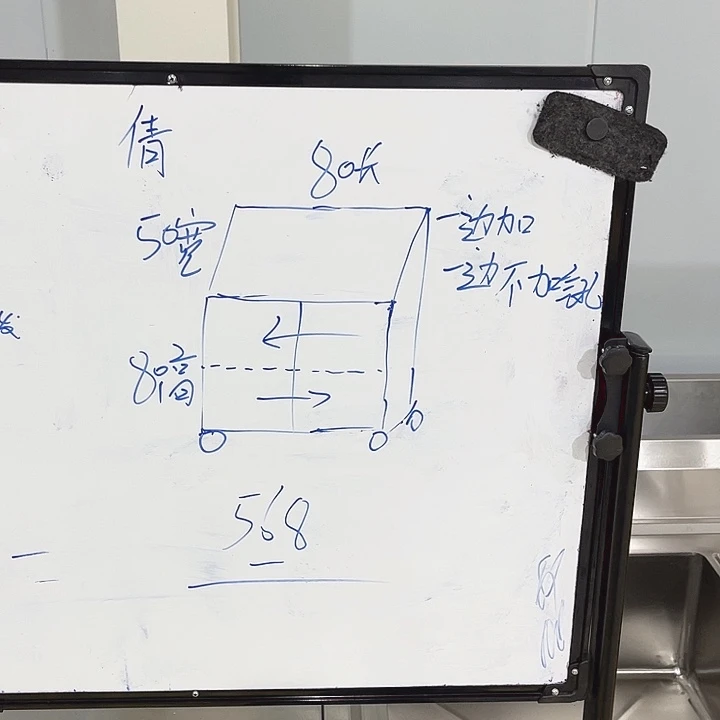 倩
80长
50宽
一边加
一边不加
80高
568